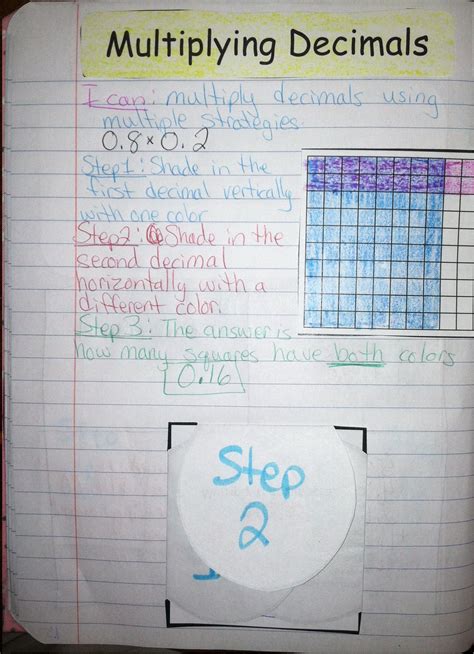 Multiplying Decimals
I can: multiply decimals using
multiple strategies.
0.8 × 0.2
Step 1: Shade in the
first decimal vertically
with one color
Step 2: Shade in the
second decimal
horizontally with a
different color.
Step 3: The answer is
how many squares have both colors
0.16
Step
2